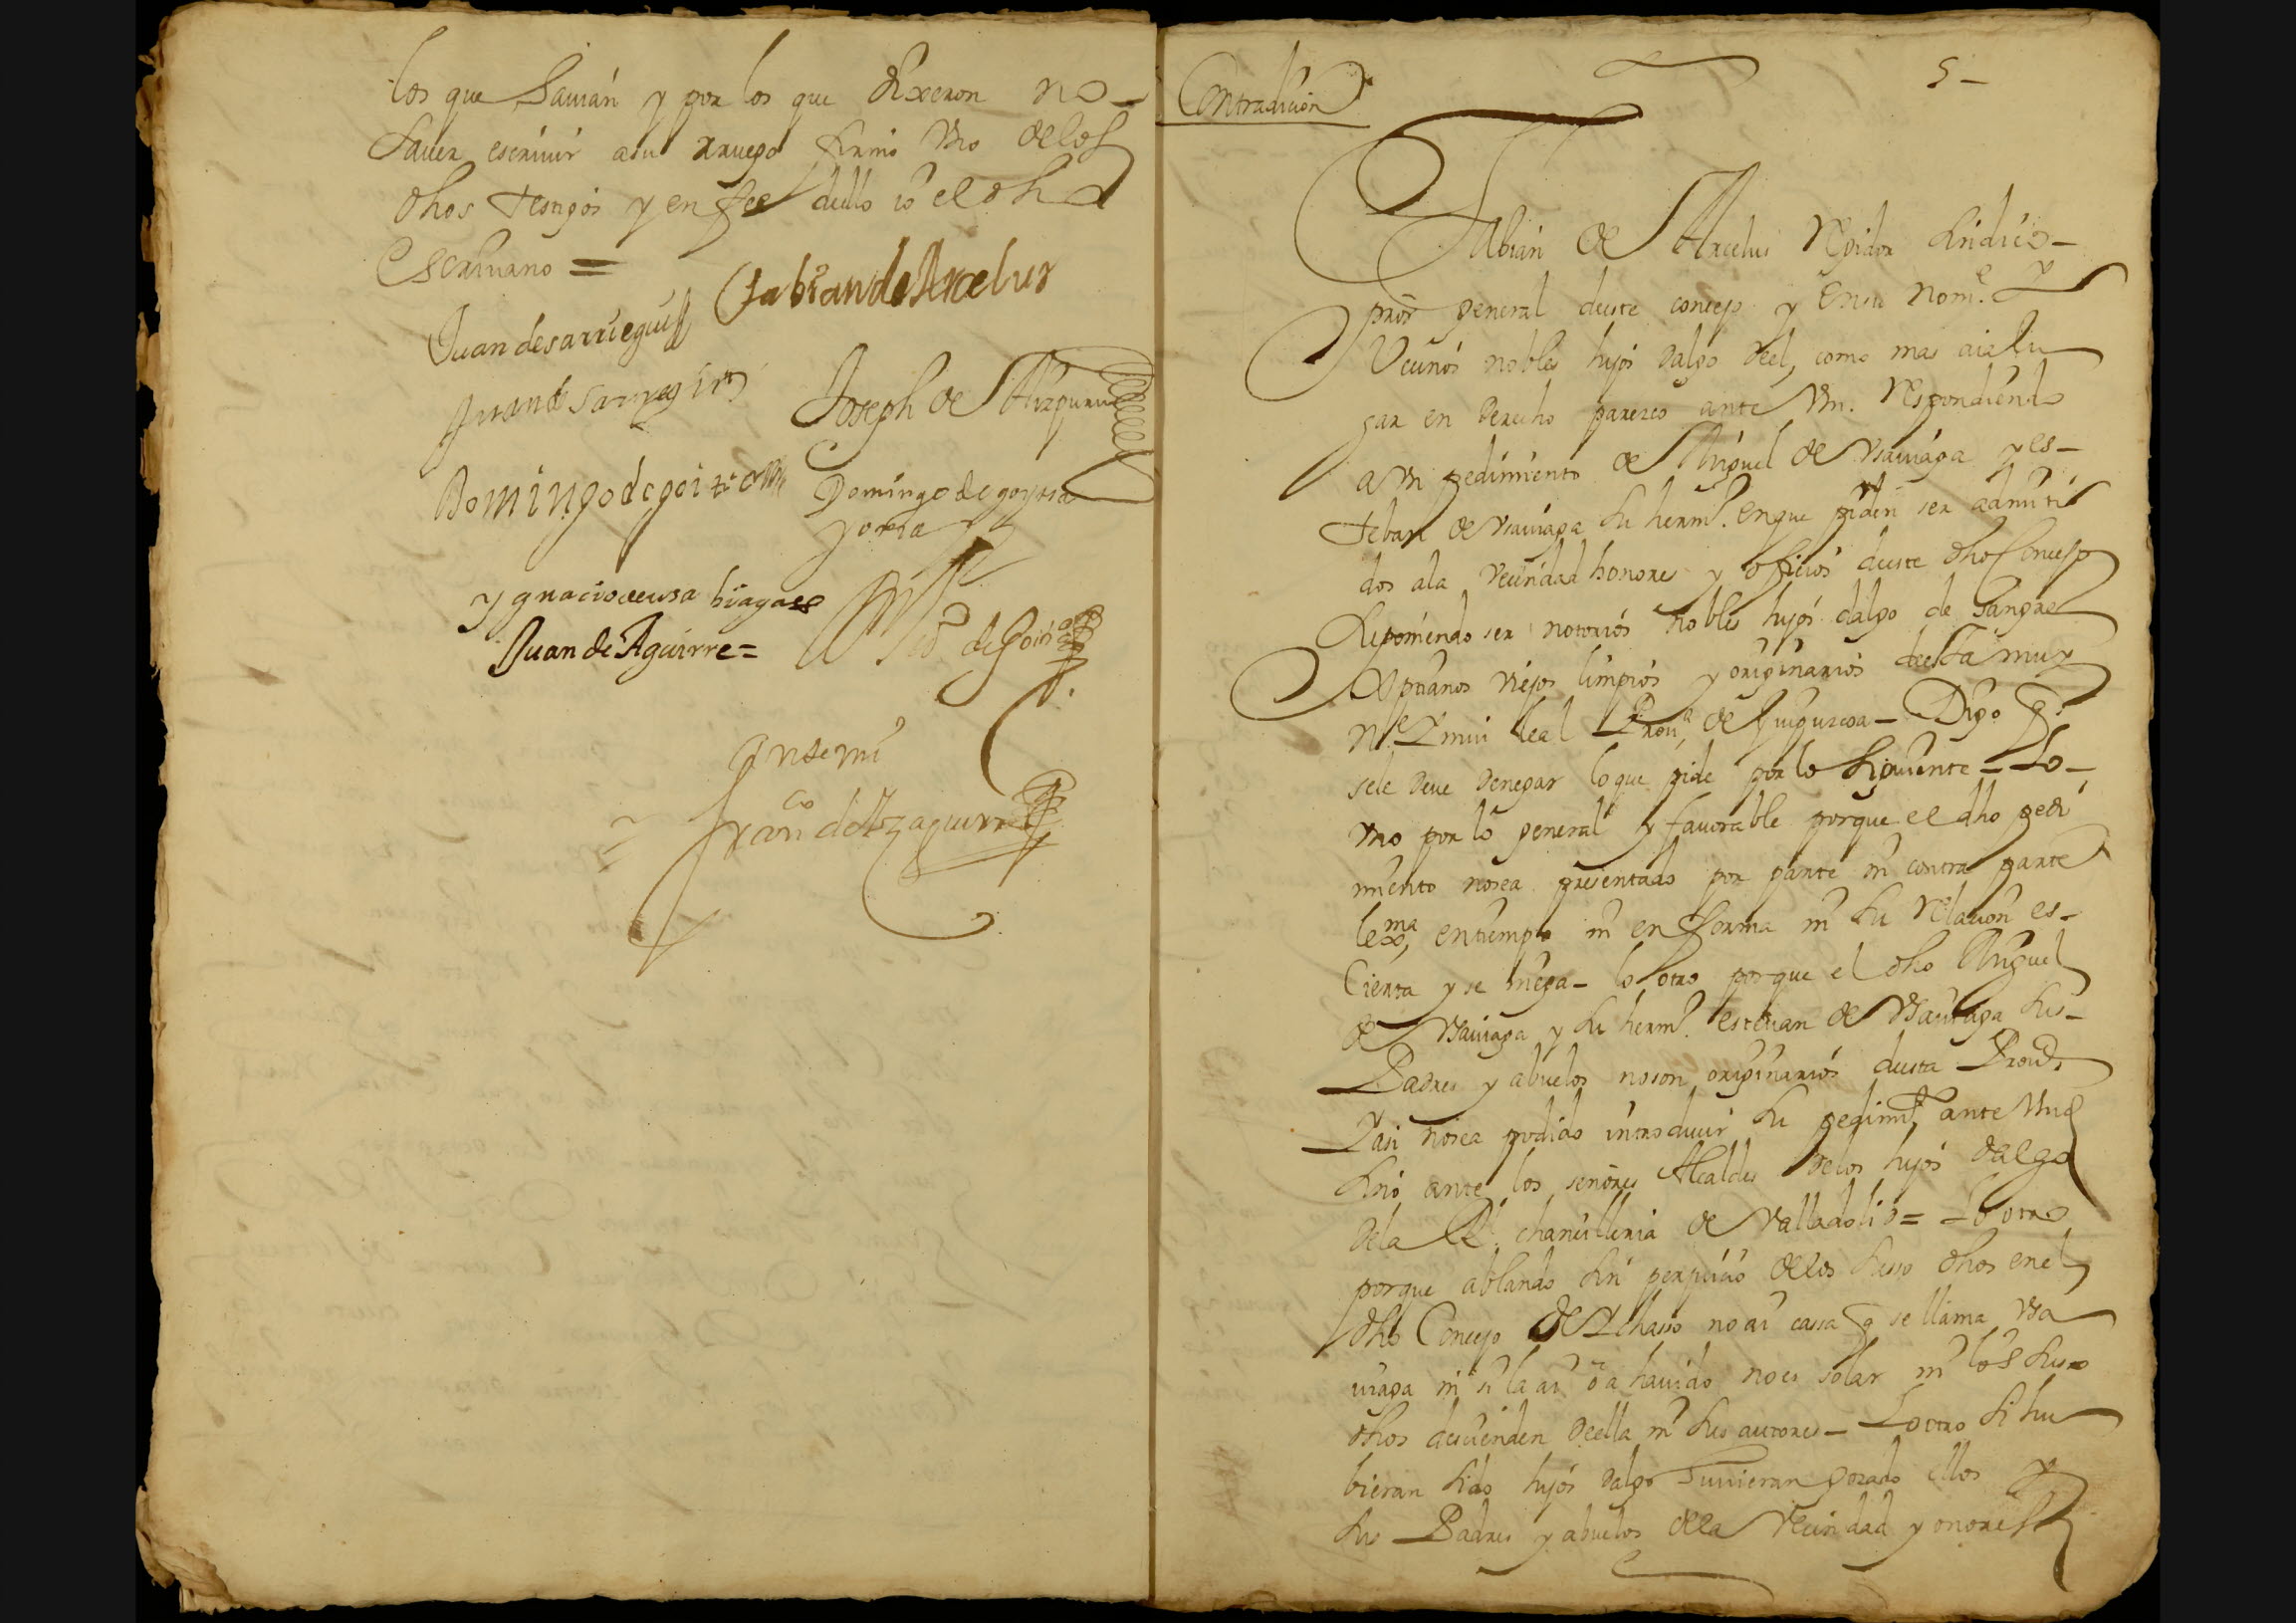 los que Sauian y por los que dixeron no
Sauer escriuir a su rruego firmo Vno de los
dhos testigos y en fee dello io el dho
escriuano =
fabian de Arcelus
Juan de sarriegui
Juan de sarregui
Joseph de Aizpuru
Domingo de goi
Domingo de goytia
y oria
ygnacio de usabiaga
Juan de Aguirre =
de Goiti
Ante mi
Fran.co de Yzaguirre
Contradicion
5
Fabian de Arcelus Regidor sindico
pror general deste concejo y en su nom.e y
Vecinos nobles hijos dalgo deel, como mas aia lu
gar en derecho parezco ante Vm. Respondiendo
a Vn pedimiento de Miguel de Vsauiaga y es
teban de Vsauiaga su herm.o en que piden ser admiti
dos ala vecindad honores y oficios deste dho Concejo
suponiendo ser notorios nobles hijos dalgo de sangre
Xptianos viejos limpios y originarios desta muy
N. Y mui leal Prou.a de Guipuzcoa - Digo q.
sele deue denegar lo que pide por lo siguiente - Lo
vno por lo general y fauorable porque el dho pedi
miento nosea presentado por parte ni contra parte
lexma, en tiempo ni en fforma ni su relacion es
Cierta y se niega - lo otro porque el dho Miguel
de Vsauiaga y su herm.o esteuan de Vsauiaga sus
Padres y abuelos noson originarios desta Prou.a
Y asi nosea podido introducir su pedim.to ante Vmd
sino ante los señores Alcaldes delos hijos dalgo
dela Rl. chancilleria de Valladolid = Lo otro
porque ablando sin perjuicio delos suso dhos enel
dho Concejo de Ychasso no ai cassa q se llama Vsa
uiaga ni si la ai o a hauido no es solar ni los suso
dhos descienden deella ni sus autores - Lo otro si hu
bieran sido hijos dalgo tuuieran gozado ellos y
sus Padres y abuelos dela Vecindad y onores